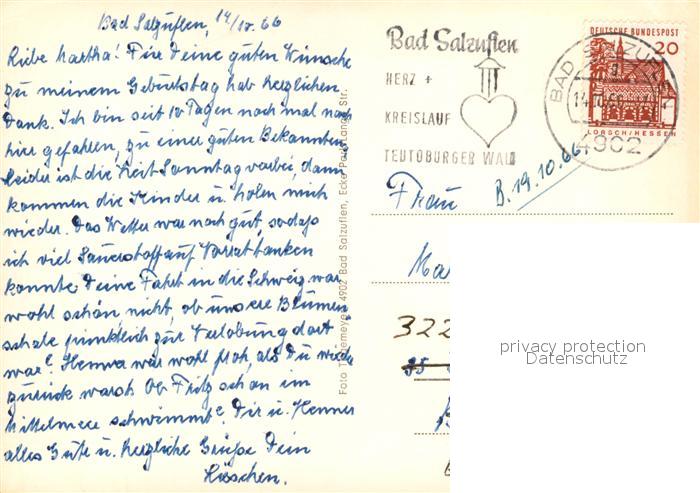 Bad Salzuflen, 14/10. 66
Liebe Martha! Für Deine guten Wünsche
zu meinem Geburtstag hab herzlichen
Dank. Ich bin seit 10 Tagen noch mal nach
hier gefahren, zu einer guten Bekannten
Leider ist die Zeit Sonntag vorbei, dann
kommen die Kinder u. holen mich
wieder. Das Wetter war noch gut, sodaß
ich viel Sauerstoff auf Vorrat tanken
konnte Deine Fahrt in die Schweiz war
wohl schön nicht, ob unsere Blumen-
schale pünktlich zur Verlobung dort
war? Henner war wohl froh, als Du wieder
zurück warst Ob Fritz schon im
Mittelmeer schwimmt? Dir u. Henner
alles Gute u. herzliche Grüße Dein
Lieschen.
Foto Tiedemeyer, 4902 Bad Salzuflen, Ecke Park-Lange Str.
Bad Salzuflen
HERZ +
KREISLAUF
TEUTOBURGER WALD
BAD SALZUFLEN
14.10.66
4902
DEUTSCHE BUNDESPOST
20
LORSCH/HESSEN
B. 19.10.66
Frau
Ma
322
35
privacy protection
Datenschutz